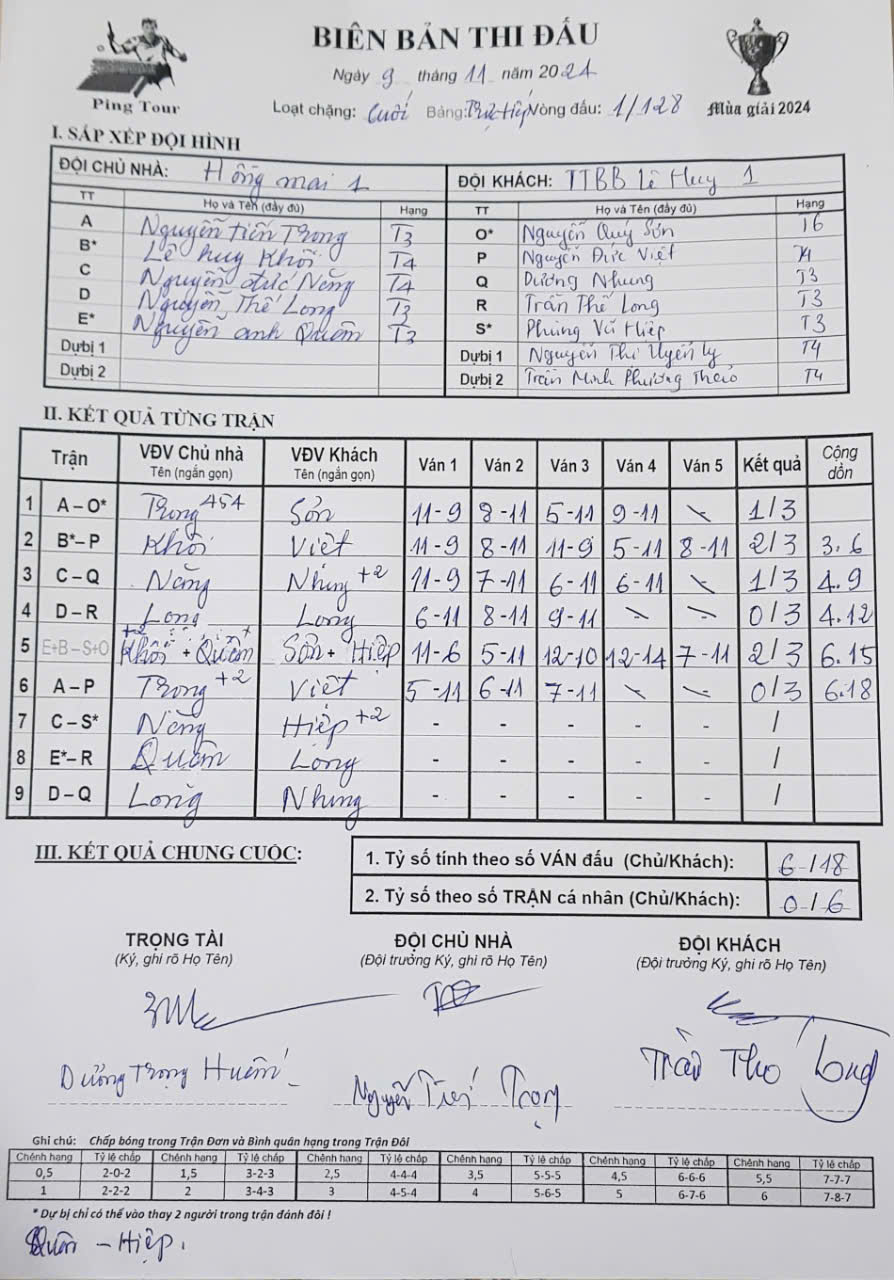 BIÊN BẢN THI ĐẤU
Ping Tour
Ngày 9 tháng 11 năm 2024
Loạt chặng: Cuối Bảng: Trực Tiếp Vòng đấu: 1/128
Mùa giải 2024
I. SẮP XẾP ĐỘI HÌNH
ĐỘI CHỦ NHÀ: Hồng mai 1 ĐỘI KHÁCH: TTBB Lê Huy 1
TT Họ và Tên (đầy đủ) Hạng TT Họ và Tên (đầy đủ) Hạng
A Nguyễn tiến Trọng T3 O* Nguyễn Quý Sơn T6
B* Lê huy Khôi T4 P Nguyễn Đức Việt T4
C Nguyễn đức Năng T4 Q Dương Nhung T3
D Nguyễn Thế Long T3 R Trần Thế Long T3
E* Nguyễn anh Quân T3 S* Phùng Vũ Hiệp T3
Dự bị 1 Dự bị 1 Nguyễn Thị Uyển Ly T4
Dự bị 2 Dự bị 2 Trần Minh Phương Thảo T4
II. KẾT QUẢ TỪNG TRẬN
Trận VĐV Chủ nhà Tên (ngắn gọn) VĐV Khách Tên (ngắn gọn) Ván 1 Ván 2 Ván 3 Ván 4 Ván 5 Kết quả Cộng dồn
1 A – O* Trọng 454 Sơn 11-9 8-11 5-11 9-11 - 1/3
2 B* – P Khôi Việt 11-9 8-11 11-9 5-11 8-11 2/3 3.6
3 C – Q Năng Nhung +2 11-9 7-11 6-11 6-11 - 1/3 4.9
4 D – R Long Long 6-11 8-11 9-11 - - 0/3 4.12
5 E+B – S+O +2 Khôi + Quân Sơn + Hiệp 11-6 5-11 12-10 12-14 7-11 2/3 6.15
6 A – P Trọng +2 Việt 5-11 6-11 7-11 - - 0/3 6.18
7 C – S* Năng Hiệp +2 - - - - - /
8 E* – R Quân Long - - - - - /
9 D – Q Long Nhung - - - - - /
III. KẾT QUẢ CHUNG CUỘC:
1. Tỷ số tính theo số VÁN đấu (Chủ/Khách): 6/18
2. Tỷ số theo số TRẬN cá nhân (Chủ/Khách): 0/6
TRỌNG TÀI ĐỘI CHỦ NHÀ ĐỘI KHÁCH
(Ký, ghi rõ Họ Tên) (Đội trưởng Ký, ghi rõ Họ Tên) (Đội trưởng Ký, ghi rõ Họ Tên)
Dương Trọng Nguyễn Tiến Trọng Trần Thế Long
Ghi chú: Chấp bóng trong Trận Đơn và Bình quân hạng trong Trận Đôi
Chênh hạng Tỷ lệ chấp Chênh hạng Tỷ lệ chấp Chênh hạng Tỷ lệ chấp Chênh hạng Tỷ lệ chấp Chênh hạng Tỷ lệ chấp Chênh hạng Tỷ lệ chấp
0,5 2-0-2 1,5 3-2-3 2,5 4-4-4 3,5 5-5-5 4,5 6-6-6 5,5 7-7-7
1 2-2-2 2 3-4-3 3 4-5-4 4 5-6-5 5 6-7-6 6 7-8-7
* Dự bị chỉ có thể vào thay 2 người trong trận đánh đôi !
Quân - Hiệp.